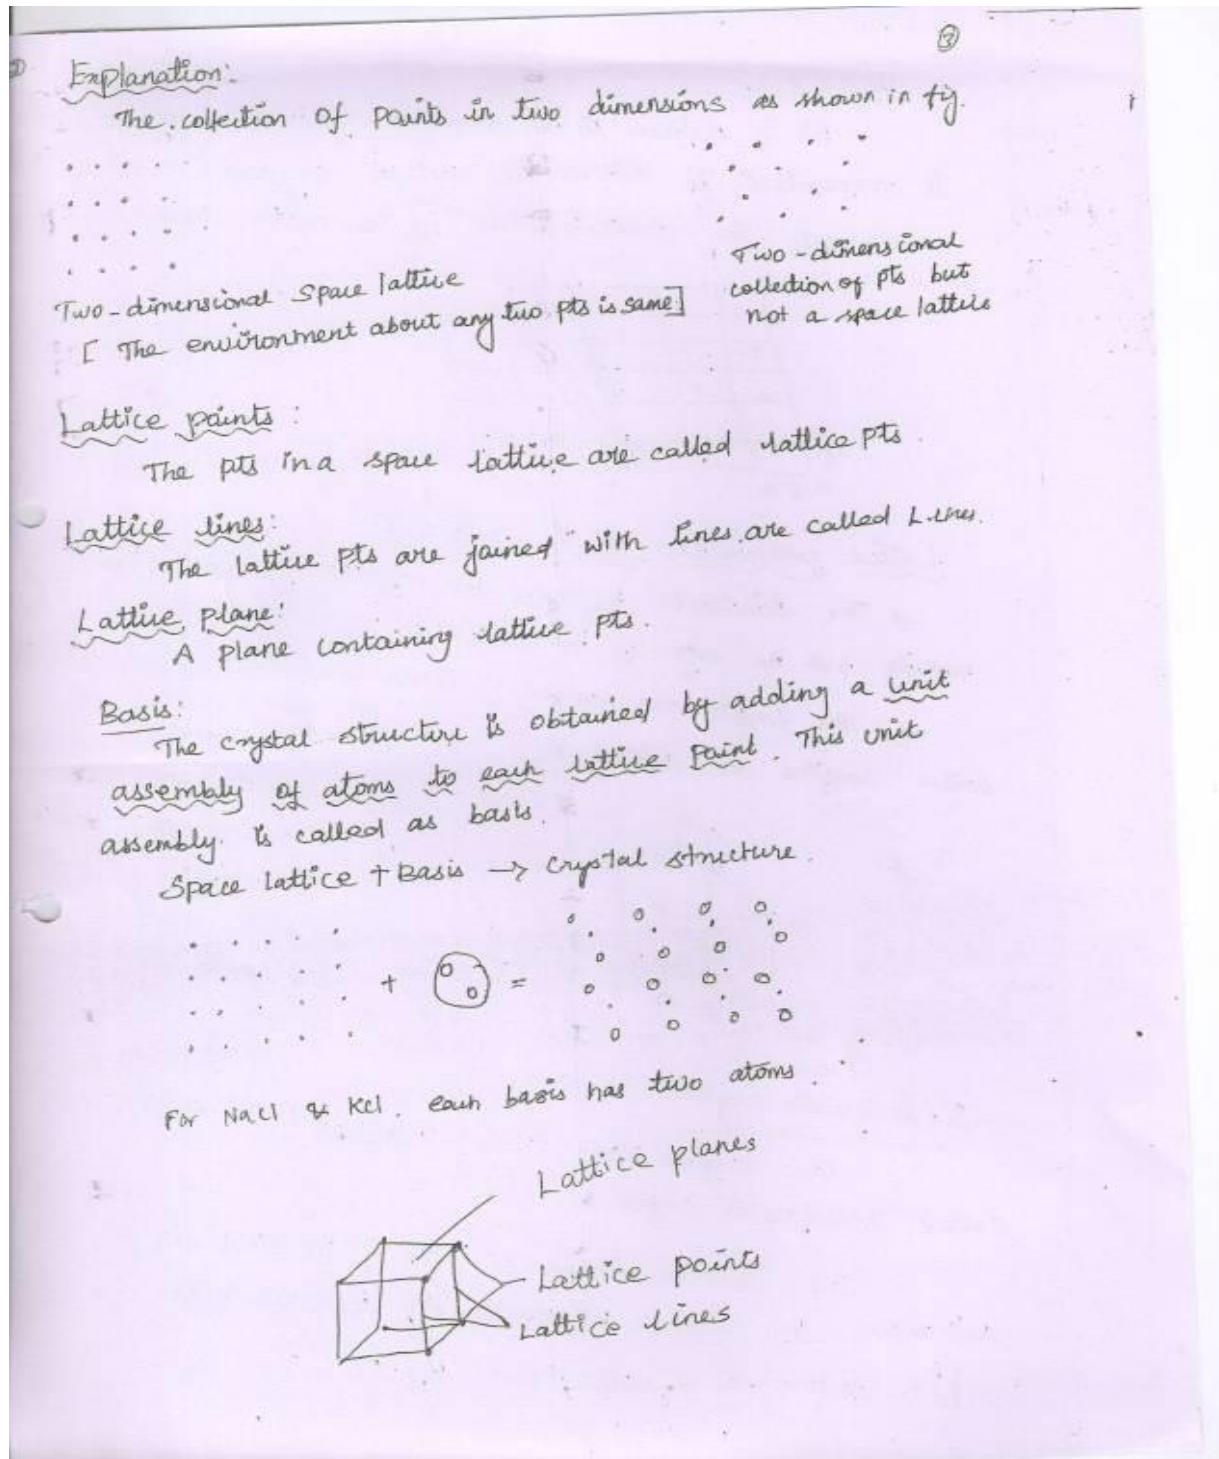 ③
Explanation:
The collection of points in two dimensions as shown in fig.
Two-dimensional Space lattice
[ The environment about any two pts is same]
Two-dimensional
collection of pts but
not a space lattice
Lattice points :
The pts in a space lattice are called lattice pts.
Lattice lines:
The lattice pts are joined with lines are called L.lines.
Lattice Plane:
A plane containing lattice pts.
Basis:
The crystal structure is obtained by adding a unit
assembly of atoms to each lattice point. This unit
assembly is called as basis.
Space lattice + Basis → crystal structure.
+ =
For NaCl & KCl. each basis has two atoms.
Lattice planes
Lattice points
Lattice lines